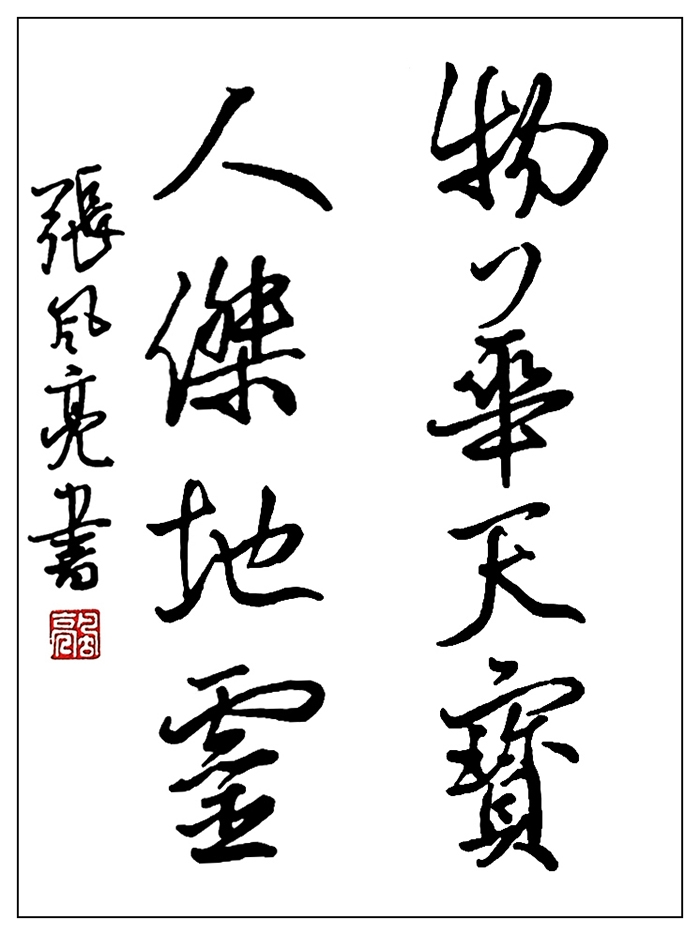 物華天寶
人傑地靈
張風亮書